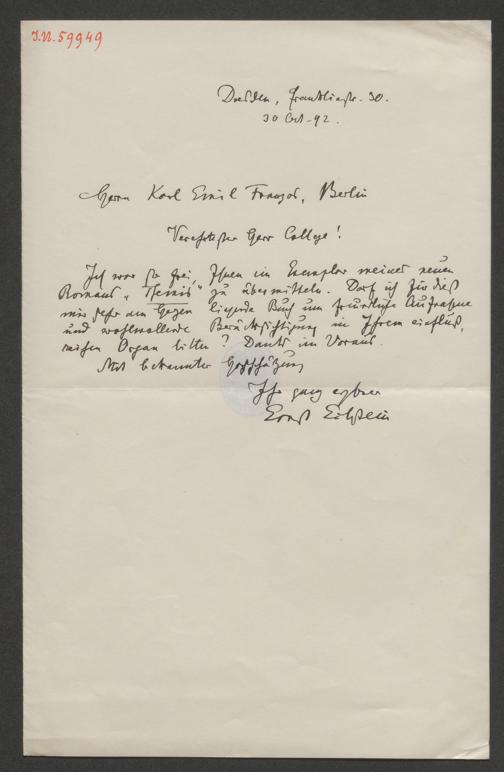 I.N. 59949
Dresden, Franklinstr. 30.
30 Oct. 92.
Herrn Karl Emil Franzos, Berlin
Verehrtester Herr College!
Ich war so frei, Ihnen ein Exemplar meines neuen
Romans „Themis“ zu übermitteln. Darf ich für dieß
mir sehr am Herzen liegende Buch um freundliche Aufnahme
und wohlwollende Berücksichtigung in Ihrem einfluß-
reichen Organ bitten? Dank im Voraus.
Mit bekannter Hochschätzung
Ihr ganz ergbner
Ernst Eckstein